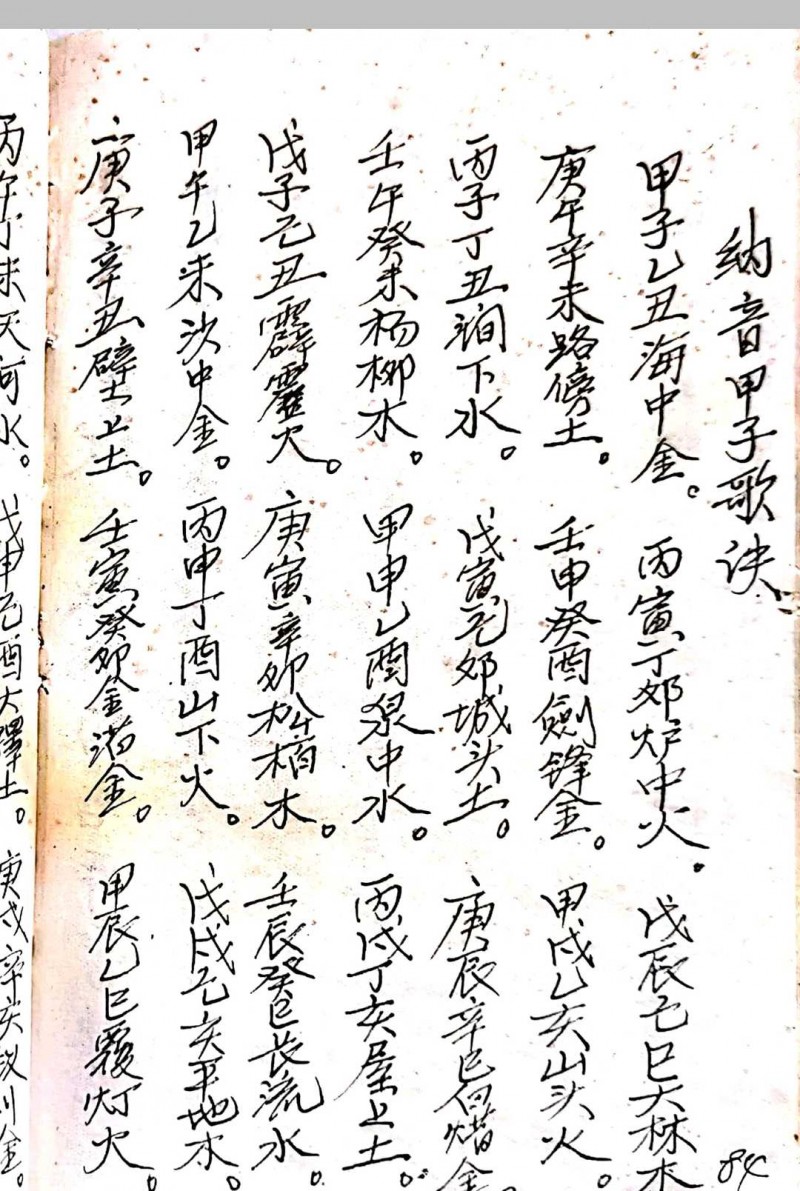 纳音甲子歌诀
甲子乙丑海中金。丙寅丁卯炉中火。戊辰己巳大林木
庚午辛未路傍土。壬申癸酉劍锋金。甲戌乙亥山头火。
丙子丁丑涧下水。戊寅己卯城头土。庚辰辛巳白熸金
壬午癸未杨柳木。甲申乙酉泉中水。丙戌丁亥屋上土。
戊子己丑霹靂火。庚寅辛卯松栢木。壬辰癸巳长流水。
甲午乙未沙中金。丙申丁酉山下火。戊戌己亥平地木。
庚子辛丑壁上土。壬寅癸卯金泊金。甲辰乙巳覆灯火。
丙午丁未天河水。戊申己酉大驛土。庚戌辛亥钗川金。
84